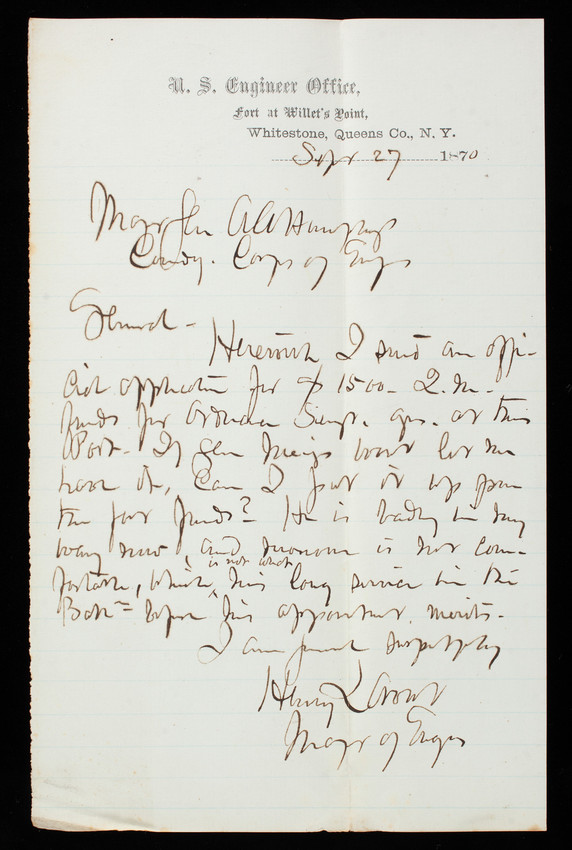 U. S. Engineer Office,
Fort at Willet's Point,
Whitestone, Queens Co., N. Y.
Sept 27 1870
Major Gen A A Humphreys
Comdg. Corps of Engrs
General -
Herewith I send an offi-
cial application for $1500 - Q. M.
funds for Ordnance Sergt. qrs. at this
Post - If Gen Meigs wont let me
have it, Can I put it up from
the fort funds? - He is badly in my
way now, and moreover is not com-
fortable, which is not what his long service in the
Batt= before his appointment, merits -
I am General respectfully
Henry L Abbot
Major of Engrs